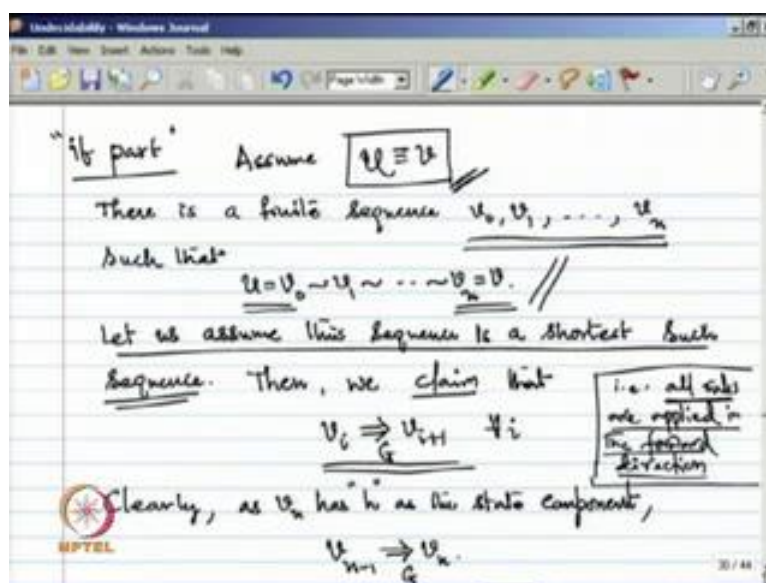 Undecidability - Windows Journal
File Edit View Insert Actions Tools Help
Page Width
"if part" Assume u ≡ v
There is a finite sequence v₀, v₁, ..., vₙ
such that
u = v₀ ~ v₁ ~ ... ~ vₙ = v.
Let us assume this sequence is a shortest such
sequence. Then, we claim that
vᵢ ⇒ vᵢ₊₁ ∀i
G
i.e. all rules
are applied in
the forward
direction
Clearly, as vₙ has "h" as the state component,
vₙ₋₁ ⇒ vₙ.
G
NPTEL
30 / 44